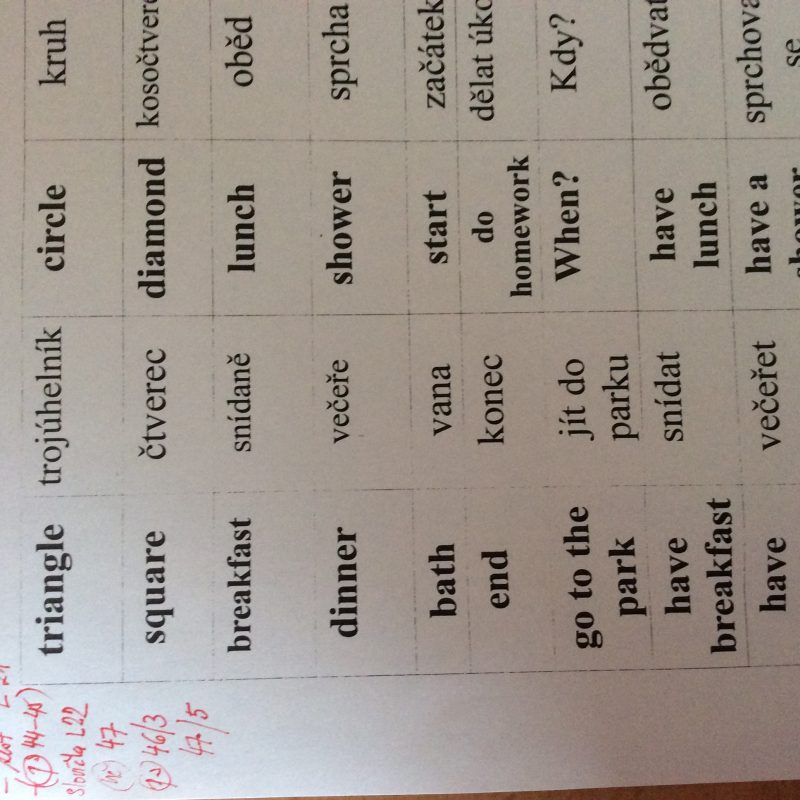 44-45)
Slovíčka L22
47
46/3
47/5
triangle trojúhelník circle kruh
square čtverec diamond kosočtvere
breakfast snídaně lunch oběd
dinner večeře shower sprcha
bath vana start začátek
end konec do homework dělat úko
go to the park jít do parku When? Kdy?
have breakfast snídat have lunch obědvat
have večeřet have a shower sprchova se